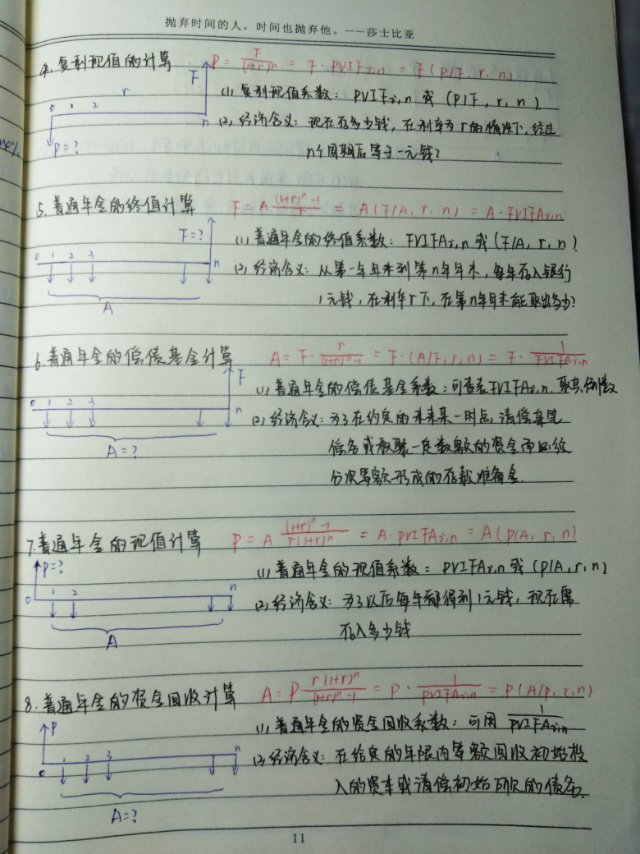 抛弃时间的人，时间也抛弃他。——莎士比亚
4.复利现值的计算 P = F/(1+r)^n = F·PVIFr,n = F(P/F, r, n)
0 1 2 r F
(1) 复利现值系数: PVIFr,n 或 (P/F, r, n)
P=? n
(2) 经济含义: 现在存多少钱, 在利率为r的情况下, 经过
n个周期后等于一元钱?
5.普通年金的终值计算 F = A·((1+r)^n-1)/r = A(F/A, r, n) = A·FVIFAr,n
F=?
(1) 普通年金的终值系数: FVIFAr,n 或 (F/A, r, n)
0 1 2 3 n
(2) 经济含义: 从第一年年末到第n年年末, 每年存入银行
A
1元钱, 在利率r下, 在第n年年末能取出多少?
6.普通年金的偿债基金计算 A = F·r/((1+r)^n-1) = F·(A/F, r, n) = F·1/FVIFAr,n
F
(1) 普通年金的偿债基金系数: 可查表FVIFAr,n, 取其倒数
0 1 2 3 n
(2) 经济含义: 为了在约定的未来某一时点, 清偿某笔
A=?
债务或积聚一定数额的资金而必须
分次等额形成的存款准备金
7.普通年金的现值计算 P = A ((1+r)^n-1)/(r(1+r)^n) = A·PVIFAr,n = A(P/A, r, n)
P=?
(1) 普通年金的现值系数: PVIFAr,n 或 (P/A, r, n)
0 1 2 n
(2) 经济含义: 为了以后每年都得到1元钱, 现在需
A
存入多少钱
8.普通年金的资金回收计算 A = P r(1+r)^n/((1+r)^n-1) = P·1/PVIFAr,n = P(A/P, r, n)
P
(1) 普通年金的资金回收系数: 可用 1/PVIFAr,n
0 1 2 3 n
(2) 经济含义: 在给定的年限内等额回收初始投
A=?
入的资本或清偿初始所欠的债务
11